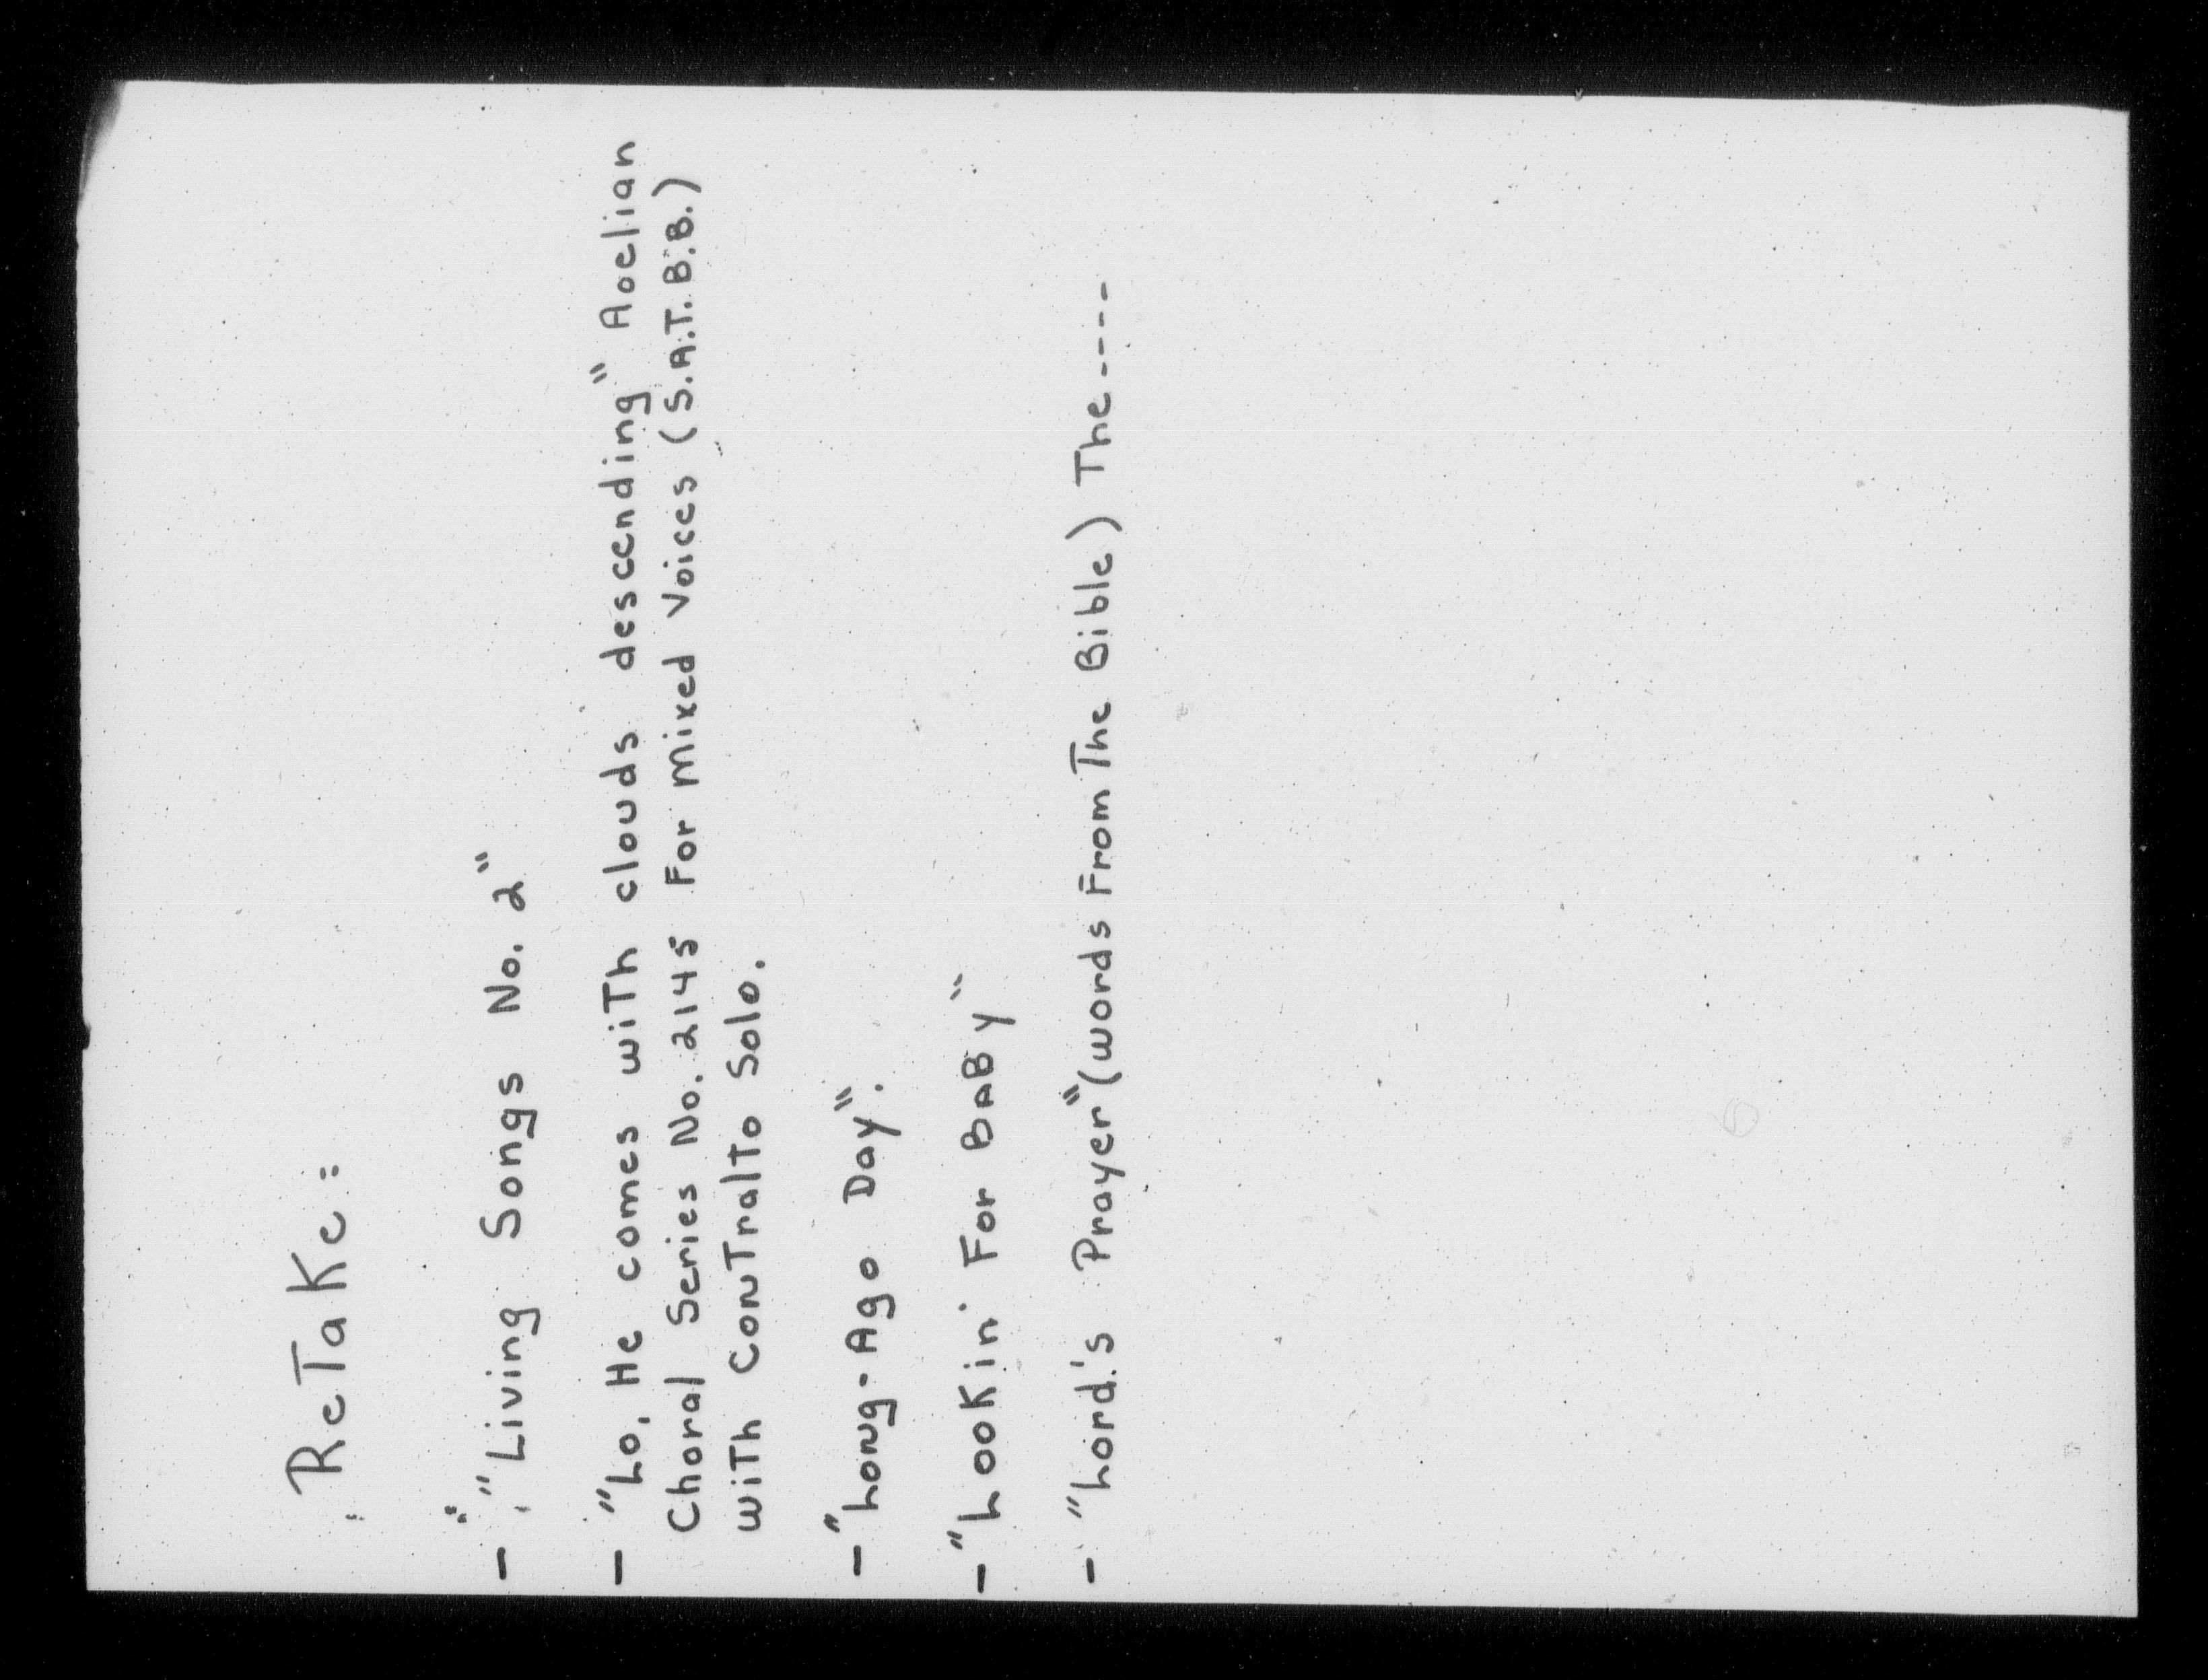 ReTake:
- "Living Songs No. 2"
- "Lo, He comes with clouds descending" Aoelian
Choral Series No. 2145 For Mixed Voices (S.A.T.B.B.)
with Contralto Solo.
- "Long-Ago Day".
- "Lookin' For BaBy"
- "Lord's Prayer" (words From The Bible) The----